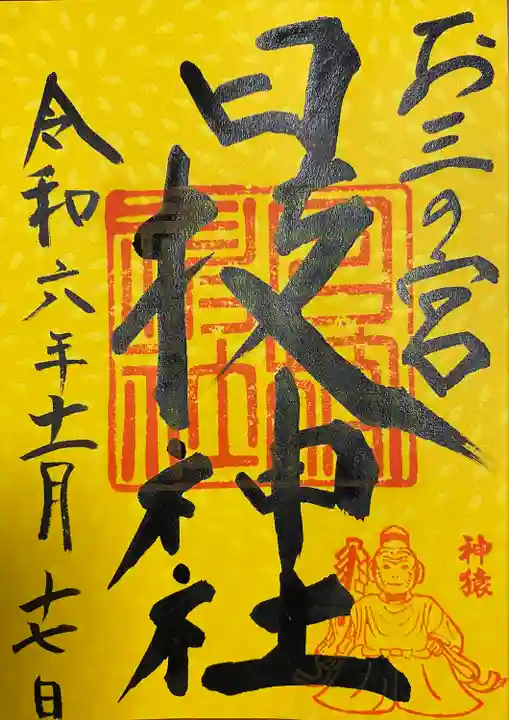 お三の宮
日枝神社
令和六年十一月十七日
神猿